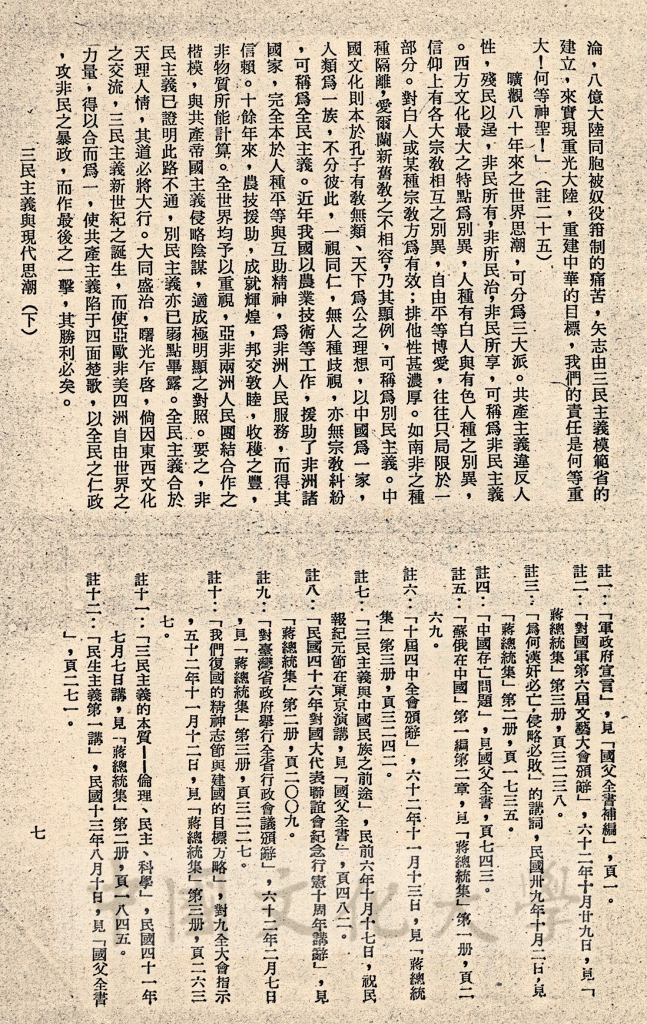 淪，八億大陸同胞被奴役箝制的痛苦，矢志由三民主義模範省的
建立，來實現重光大陸，重建中華的目標，我們的責任是何等重
大！何等神聖！」（註二十五）
曠觀八十年來之世界思潮，可分為三大派。共產主義違反人
性，殘民以逞，非民所有，非所民治，非民所享，可稱爲非民主義
。西方文化最大之特點爲別異，人種有白人與有色人種之別異，
信仰上有各大宗教相互之別異，自由平等博愛，往往只局限於一
部分。對白人或某種宗教方爲有效；排他性甚濃厚。如南非之種
種隔離，愛爾蘭新舊教之不相容，乃其顯例，可稱爲別民主義。中
國文化則本於孔子有教無類、天下爲公之理想，以中國爲一家，
人類爲一族，不分彼此，一視同仁，無人種歧視，亦無宗教糾紛
，可稱爲全民主義。近年我國以農業技術等工作，援助了非洲諸
國家，完全本於人種平等與互助精神，爲非洲人民服務，而得其
信賴。十餘年來，農技援助，成就輝煌，邦交敦睦，收穫之豐，
非物質所能計算。全世界均予以重視，亞非兩洲人民團結合作之
楷模，與共產帝國主義侵略陰謀，適成極明顯之對照。要之，非
民主義已證明此路不通，別民主義亦已弱點畢露。全民主義合於
天理人情，其道必將大行。大同盛治，曙光乍啓，倘因東西文化
之交流，三民主義新世紀之誕生，而使亞歐非美四洲自由世界之
力量，得以合而爲一，使共產主義陷于四面楚歌，以全民之仁政
，攻非民之暴政，而作最後之一擊，其勝利必矣。
三民主義與現代思潮（下）
註一：「軍政府宣言」，見「國父全書補編」，頁一。
註二：「對國軍第六屆文藝大會頒辭」，六十二年十月廿九日，見「
蔣總統集」第三册，頁三二三八。
註三：「爲何漢奸必亡，侵略必敗」的講詞，民國卅九年十月二日，見
「蔣總統集」第二册，頁一七三五。
註四：「中國存亡問題」，見國父全書，頁七四三。
註五：「蘇俄在中國」第一編第二章，見「蔣總統集」第一册，頁二
六九。
註六：「十屆四中全會頒辭」，六十二年十一月十三日，見「蔣總統
集」第三册，頁三二四二。
註七：「三民主義與中國民族之前途」，民前六年十月十七日，祝民
報紀元節在東京演講，見「國父全書」，頁四八二。
註八：「民國四十六年對國大代表聯誼會紀念行憲十周年講辭」，見
「蔣總統集」第二册，頁二〇〇九。
註九：「對臺灣省政府舉行全省行政會議頒辭」，六十二年二月七日
，見「蔣總統集」第三册，頁三二二七。
註十：「我們復國的精神志節與建國的目標方略」，對九全大會指示
，五十二年十一月十二日，見「蔣總統集」第三册，頁二六三
七。
註十一：「三民主義的本質——倫理、民主、科學」，民國四十一年
七月七日講，見「蔣總統集」第二册，頁一八四五。
註十二：「民生主義第一講」，民國十三年八月十日，見「國父全書
」，頁二七一。
七
中國文化大學